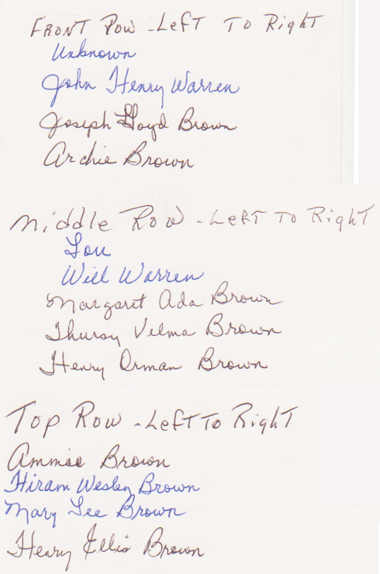 Front Row - Left To Right
Unknown
John Henry Warren
Joseph Floyd Brown
Archie Brown
Middle Row - Left To Right
Lou
Will Warren
Margaret Ada Brown
Velma Brown
Henry Orman Brown
Top Row - Left To Right
Ammie Brown
Hiram Wesley Brown
Mary Lee Brown
Henry Ellis Brown